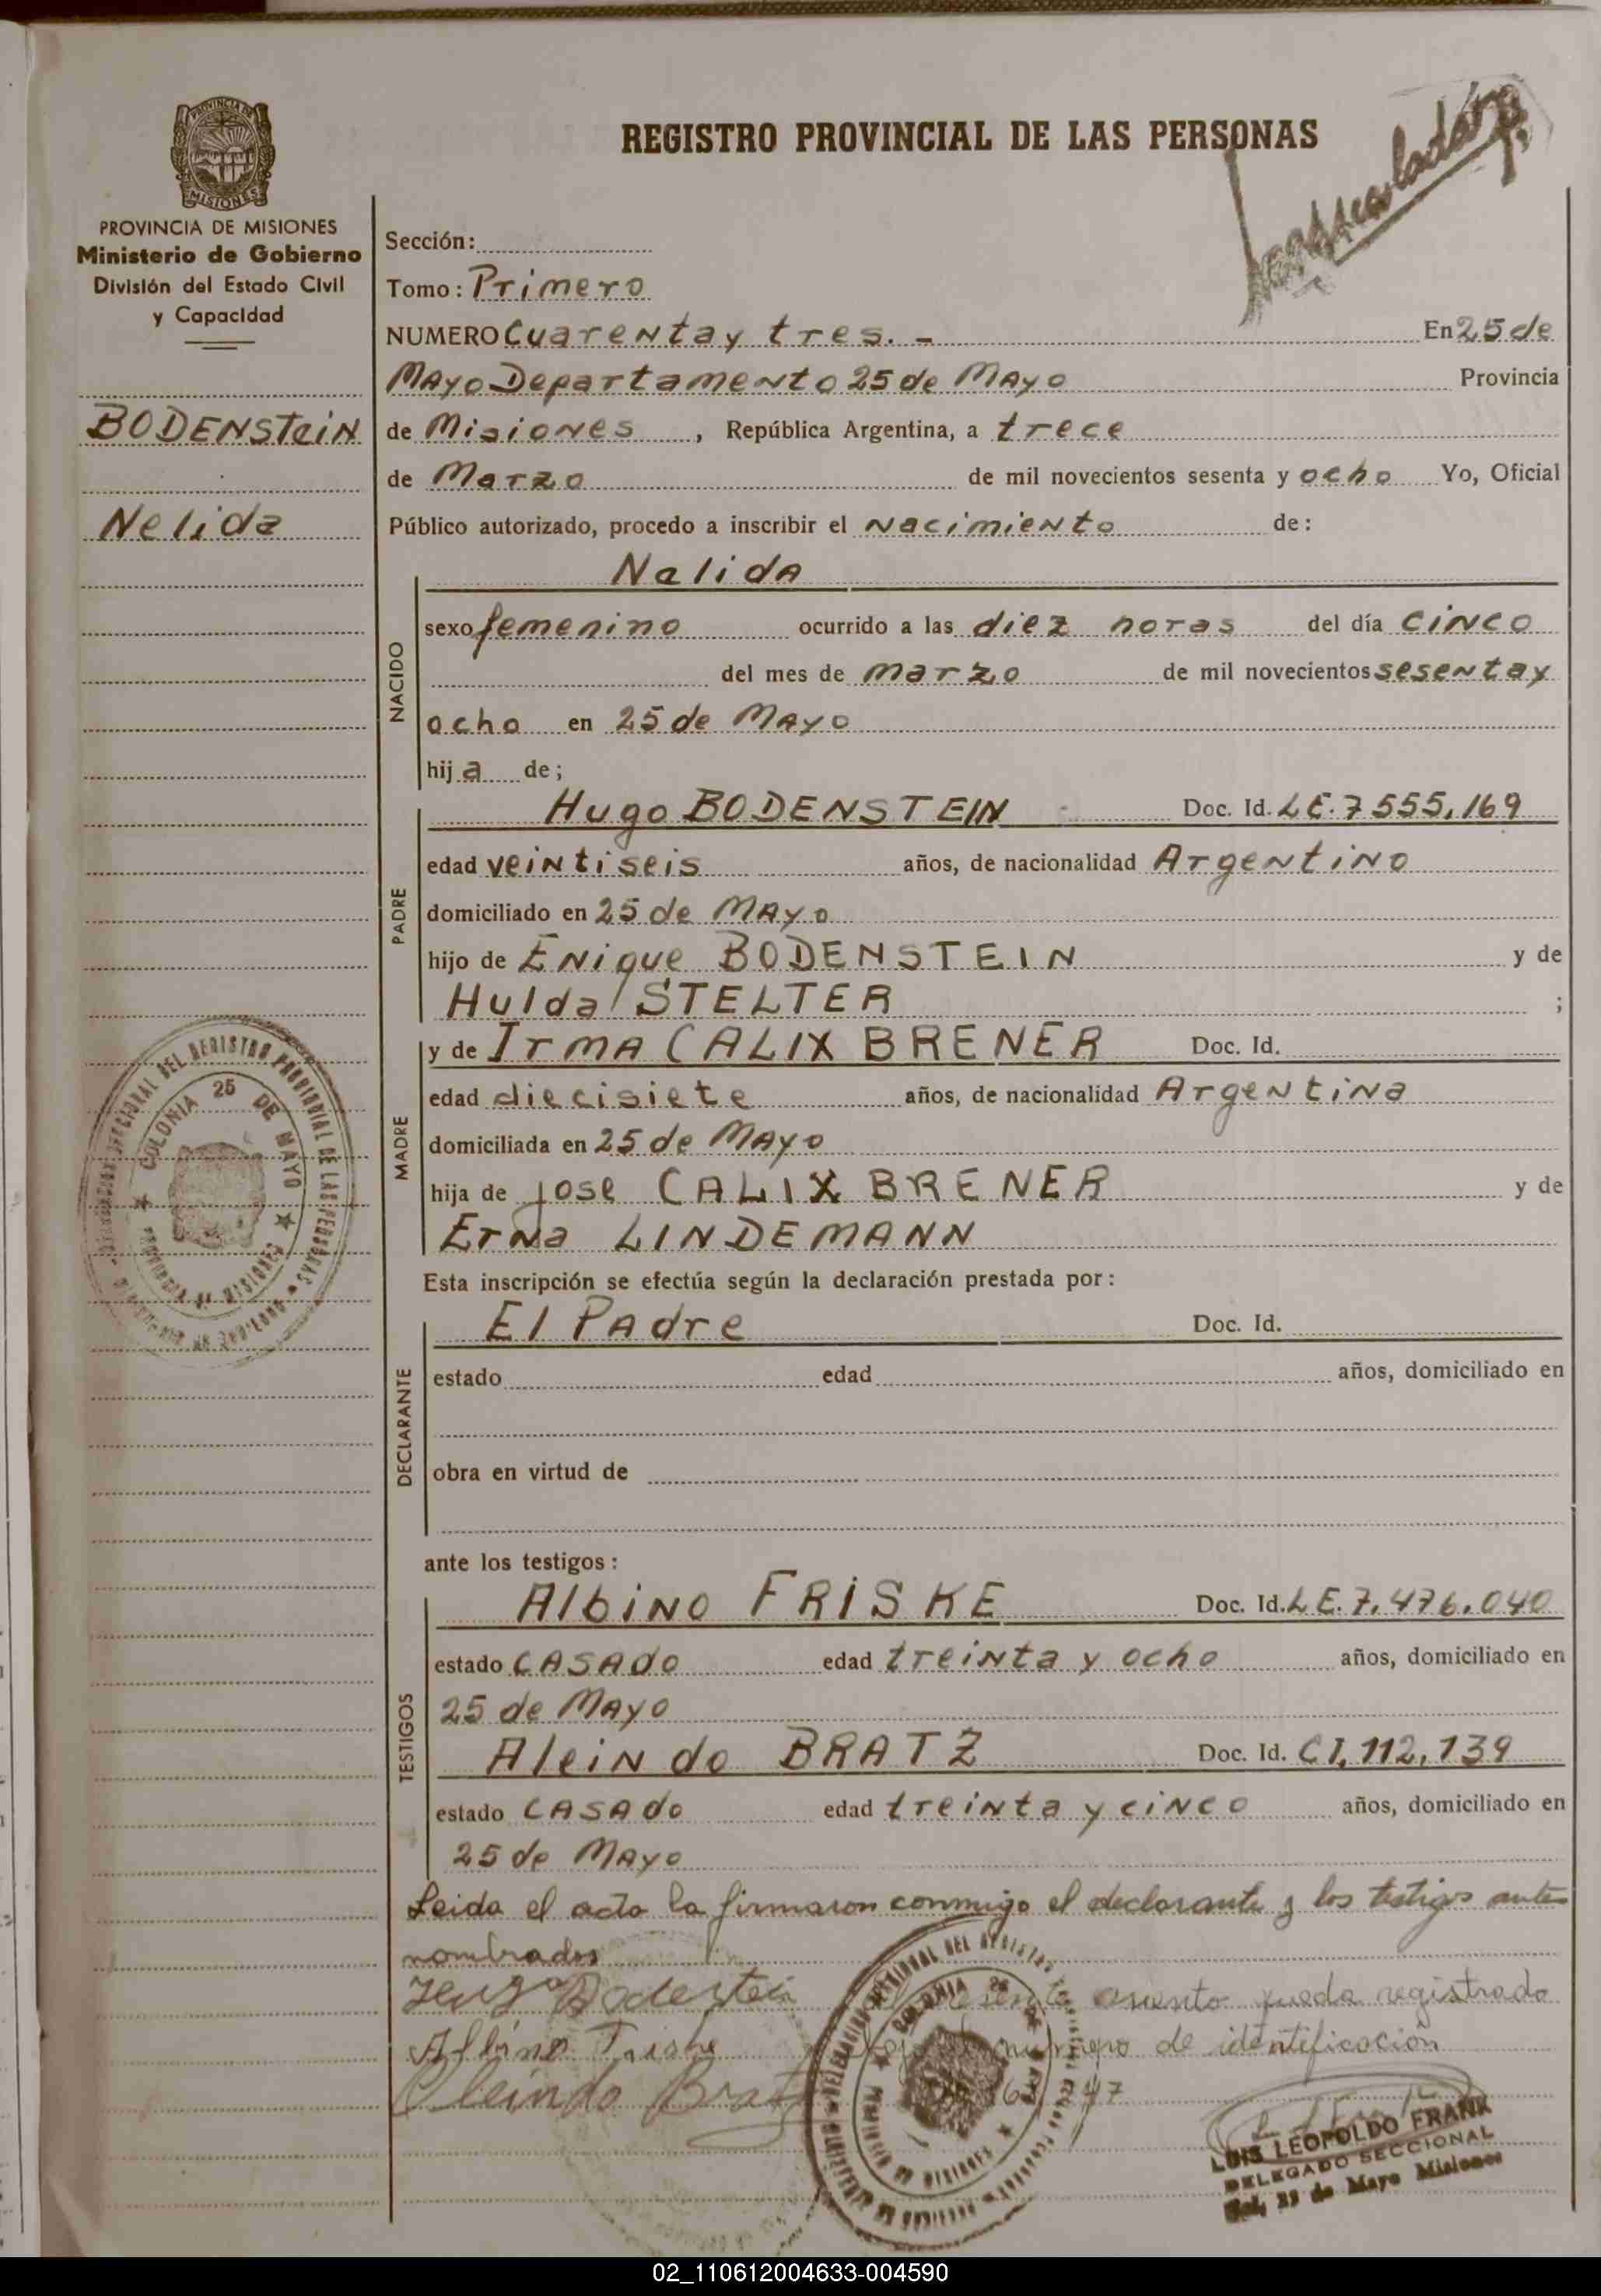 REGISTRO PROVINCIAL DE LAS PERSONAS
PROVINCIA DE
MISIONES
PROVINCIA DE MISIONES
Ministerio de Gobierno
División del Estado Civil
y Capacidad
BODENSTEIN
Nelida
Sección:
Tomo: Primero
NUMERO Cuarenta y tres. - En 25 de
Mayo Departamento 25 de Mayo Provincia
de Misiones, República Argentina, a trece
de Marzo de mil novecientos sesenta y ocho Yo, Oficial
Público autorizado, procedo a inscribir el nacimiento de:
NACIDO
Nelida
sexo femenino ocurrido a las diez horas del día cinco
del mes de marzo de mil novecientos sesenta y
ocho en 25 de Mayo
hija de;
PADRE
Hugo BODENSTEIN Doc. Id. L.E. 7555,169
edad veintiseis años, de nacionalidad Argentino
domiciliado en 25 de Mayo
hijo de Enique BODENSTEIN y de
Hulda STELTER ;
MADRE
y de Irma CALIX BRENER Doc. Id.
edad diecisiete años, de nacionalidad Argentina
domiciliada en 25 de Mayo
hija de jose CALIX BRENER y de
Erna LINDEMANN
Esta inscripción se efectúa según la declaración prestada por:
DECLARANTE
El Padre Doc. Id.
estado edad años, domiciliado en
obra en virtud de
ante los testigos:
TESTIGOS
Albino FRISKE Doc. Id. L.E. 7.476.040
estado CASADO edad treinta y ocho años, domiciliado en
25 de Mayo
Aleindo BRATZ Doc. Id. C.I. 112,139
estado CASADO edad treinta y cinco años, domiciliado en
25 de Mayo
Leida el acta la firmaron conmigo el declarante y los testigos antes
nombrados
asiento queda registrado
numero de identificacion
COLONIA 25 DE MAYO
LUIS LEOPOLDO FRANK
DELEGADO SECCIONAL
Col. 25 de Mayo Misiones
02_110612004633-004590